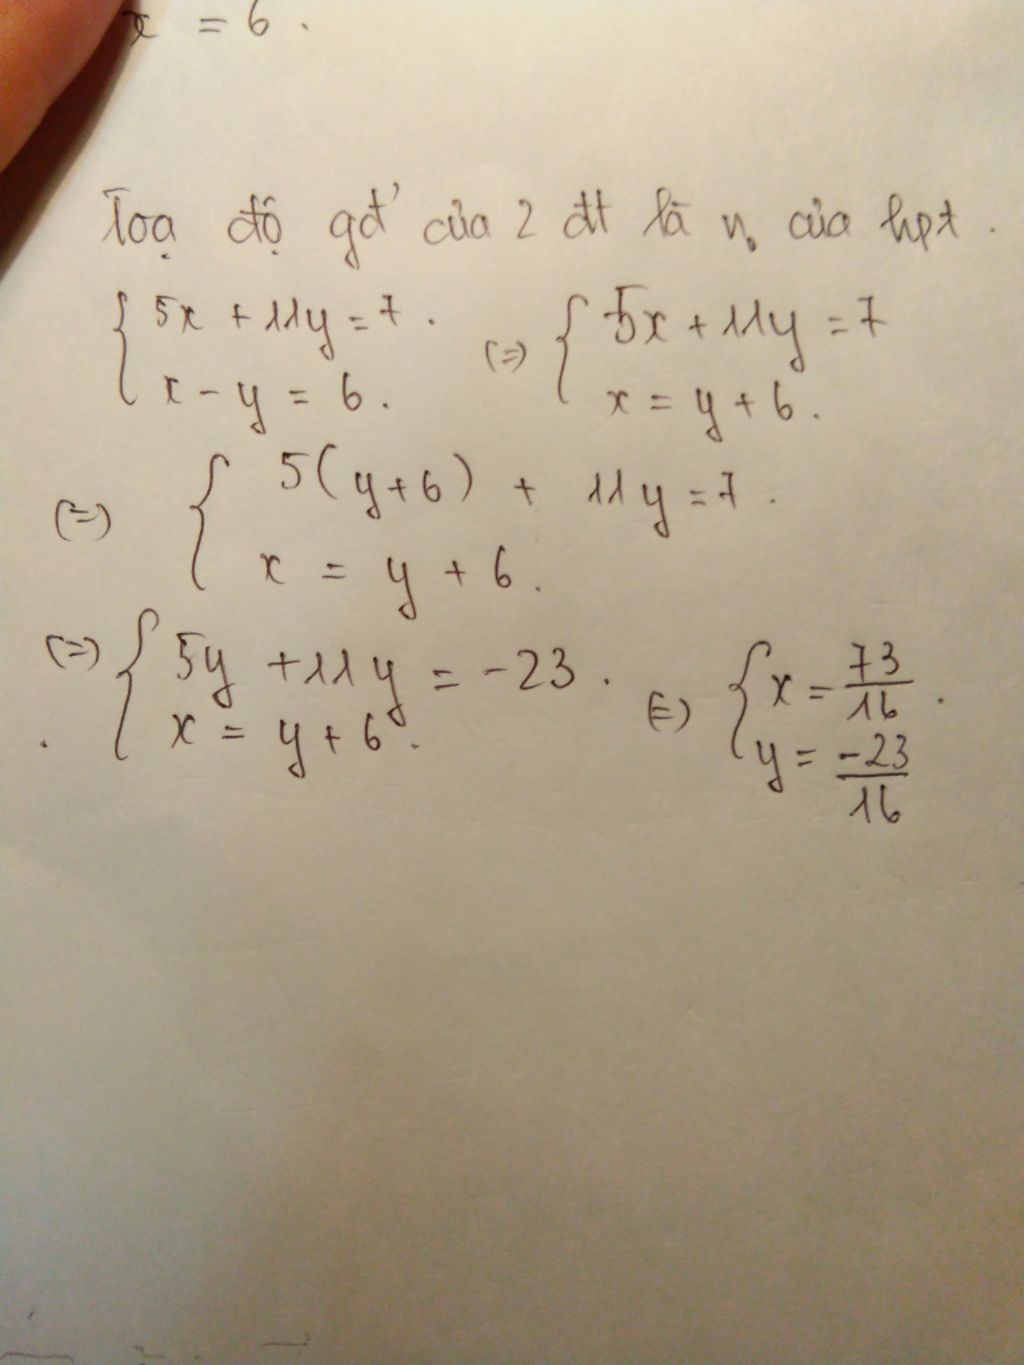 x = 6 .
Toạ độ gđ' của 2 đt là n₀ của hpt .
{ 5x + 11y = 7 . (=) { 5x + 11y = 7
x - y = 6 . x = y + 6 .
(=) { 5(y+6) + 11y = 7 .
x = y + 6 .
(=) { 5y + 11y = -23 . (=) { x = 73/16 .
. x = y + 6 . y = -23/16